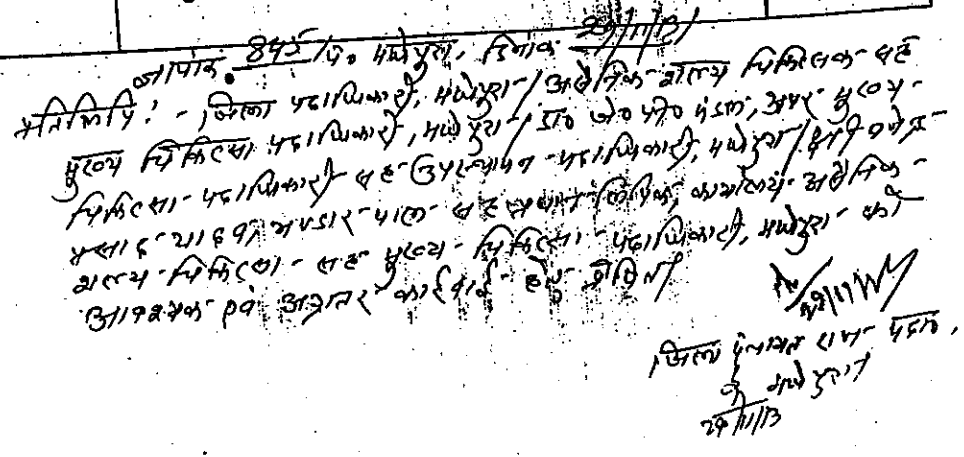 ज्ञापांक. 845 /पं० मधेपुरा, दिनांक 29/11/13/
प्रतिलिपि :- जिला पदाधिकारी, मधेपुरा/असैनिक शल्य चिकित्सक सह
मुख्य चिकित्सा पदाधिकारी, मधेपुरा/डा० जे० पी० मंडल, अपर मुख्य-
चिकित्सा-पदाधिकारी-सह-उपस्थापन-पदाधिकारी, मधेपुरा/श्री
प्रसाद यादव, भण्डार पाल-सह प्रधान लिपिक, कार्यालय-असैनिक-
शल्य-चिकित्सा-सह मुख्य-चिकित्सा-पदाधिकारी, मधेपुरा-को
आवश्यक एवं अग्रतर कार्रवाई हेतु प्रेषित/
29/11/13
जिला पंचायत राज पदा०,
मधेपुरा
29/11/13